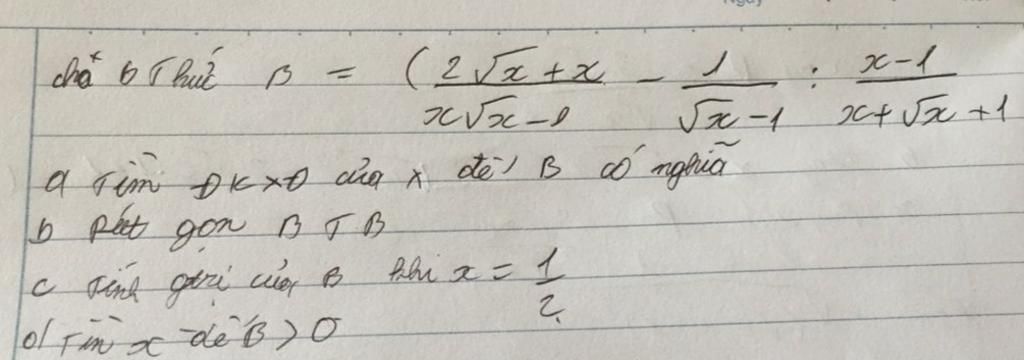 cho b Thức B = ( \frac{2\sqrt{x}+x}{x\sqrt{x}-1} - \frac{1}{\sqrt{x}-1} : \frac{x-1}{x+\sqrt{x}+1}
a Tìm ĐKXĐ của x để B có nghĩa
b Rút gọn B T B
c Tính gtrị của B khi x = \frac{1}{2}
d) Tìm x để B > 0